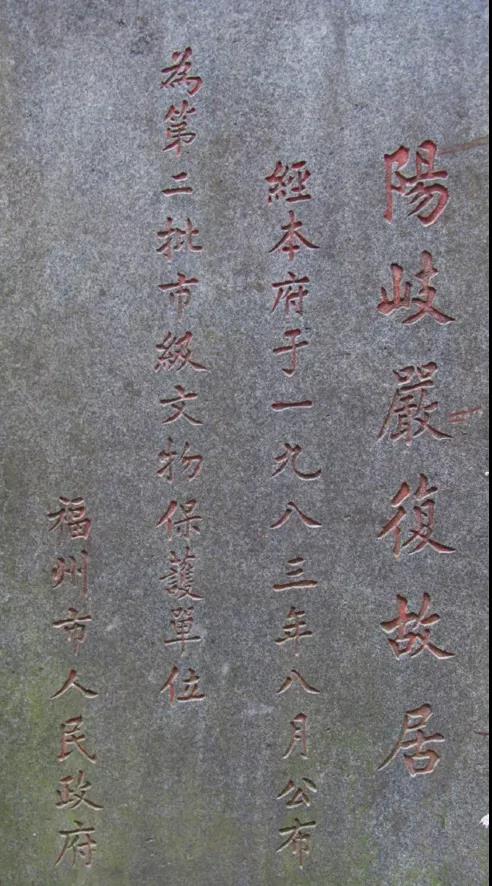 陽岐嚴復故居
經本府于一九八三年八月公布
為第二批市級文物保護單位
福州市人民政府